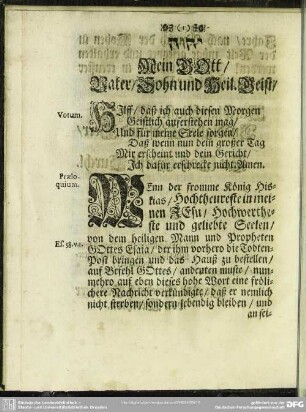 (1)
יהוה
Mein GOtt/
Vater/ Sohn und Heil. Geist/
Votum.
Hilff/ daß ich auch diesen Morgen
Geistlich aufferstehen mag/
Und für meine Seele sorgen/
Daß wenn nun dein großer Tag
Mir erscheint und dein Gericht/
Ich dafür erschrecke nicht. Amen.
Præloquium.
Wenn der fromme König Hiskias/
Hochtheureste in meinen
JEsu/ Hochwertheste
und geliebte Seelen/
von dem heiligen Mann und Propheten
GOttes Esaia/ der ihm vorhero die Todten-
Post bringen und das Hauß zu bestellen/
auf Befehl GOttes/ andeuten muste/ nunmehro
auf eben dieses hohe Wort eine frölichere
Nachricht verkündigte/ daß er nemlich
nicht sterben/ sondern lebendig bleiben/ und
an sei-